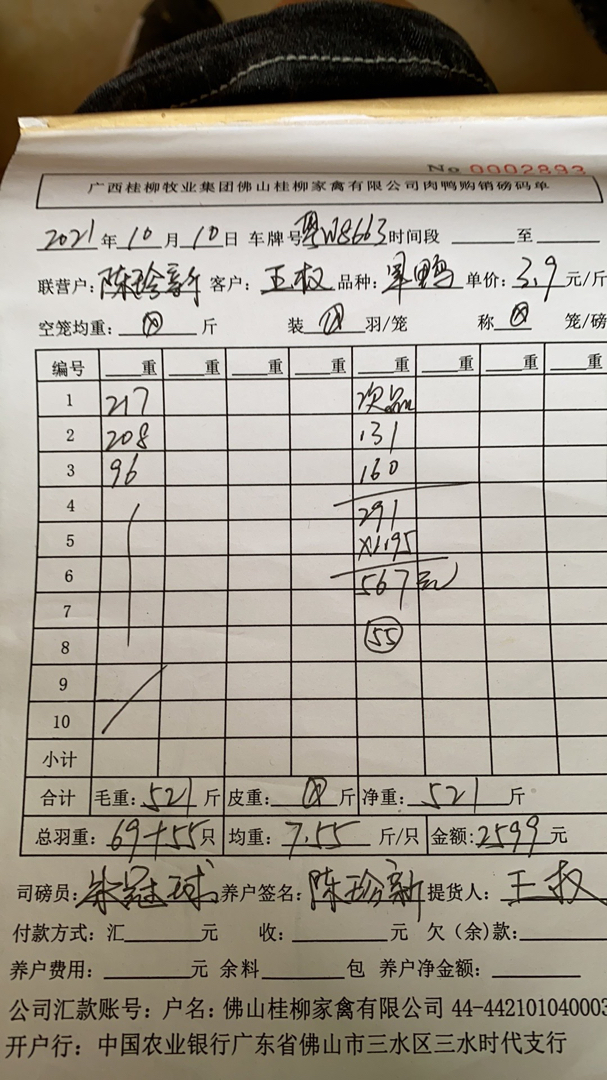 No 0002893
广西桂柳牧业集团佛山桂柳家禽有限公司肉鸭购销磅码单
2021年10月10日 车牌号粤W8663时间段 至
联营户:陈珍新 客户:王权 品种:鸭 单价:3.9元/斤
空笼均重: 斤 装 羽/笼 称 笼/磅
编号 重 重 重 重 重 重 重 重
1 217 次品
2 208 131
3 96 160
4 291
5 X1.95
6 567元
7
8 55
9
10
小计
合计 毛重:521斤 皮重: 斤 净重:521斤
总羽重:69+55只 均重:7.55斤/只 金额:2599元
司磅员: 冠球 养户签名:陈珍新 提货人:王权
付款方式:汇 元 收: 元 欠(余)款:
养户费用: 元 余料 包 养户净金额:
公司汇款账号:户名:佛山桂柳家禽有限公司 44-442101040003
开户行:中国农业银行广东省佛山市三水区三水时代支行